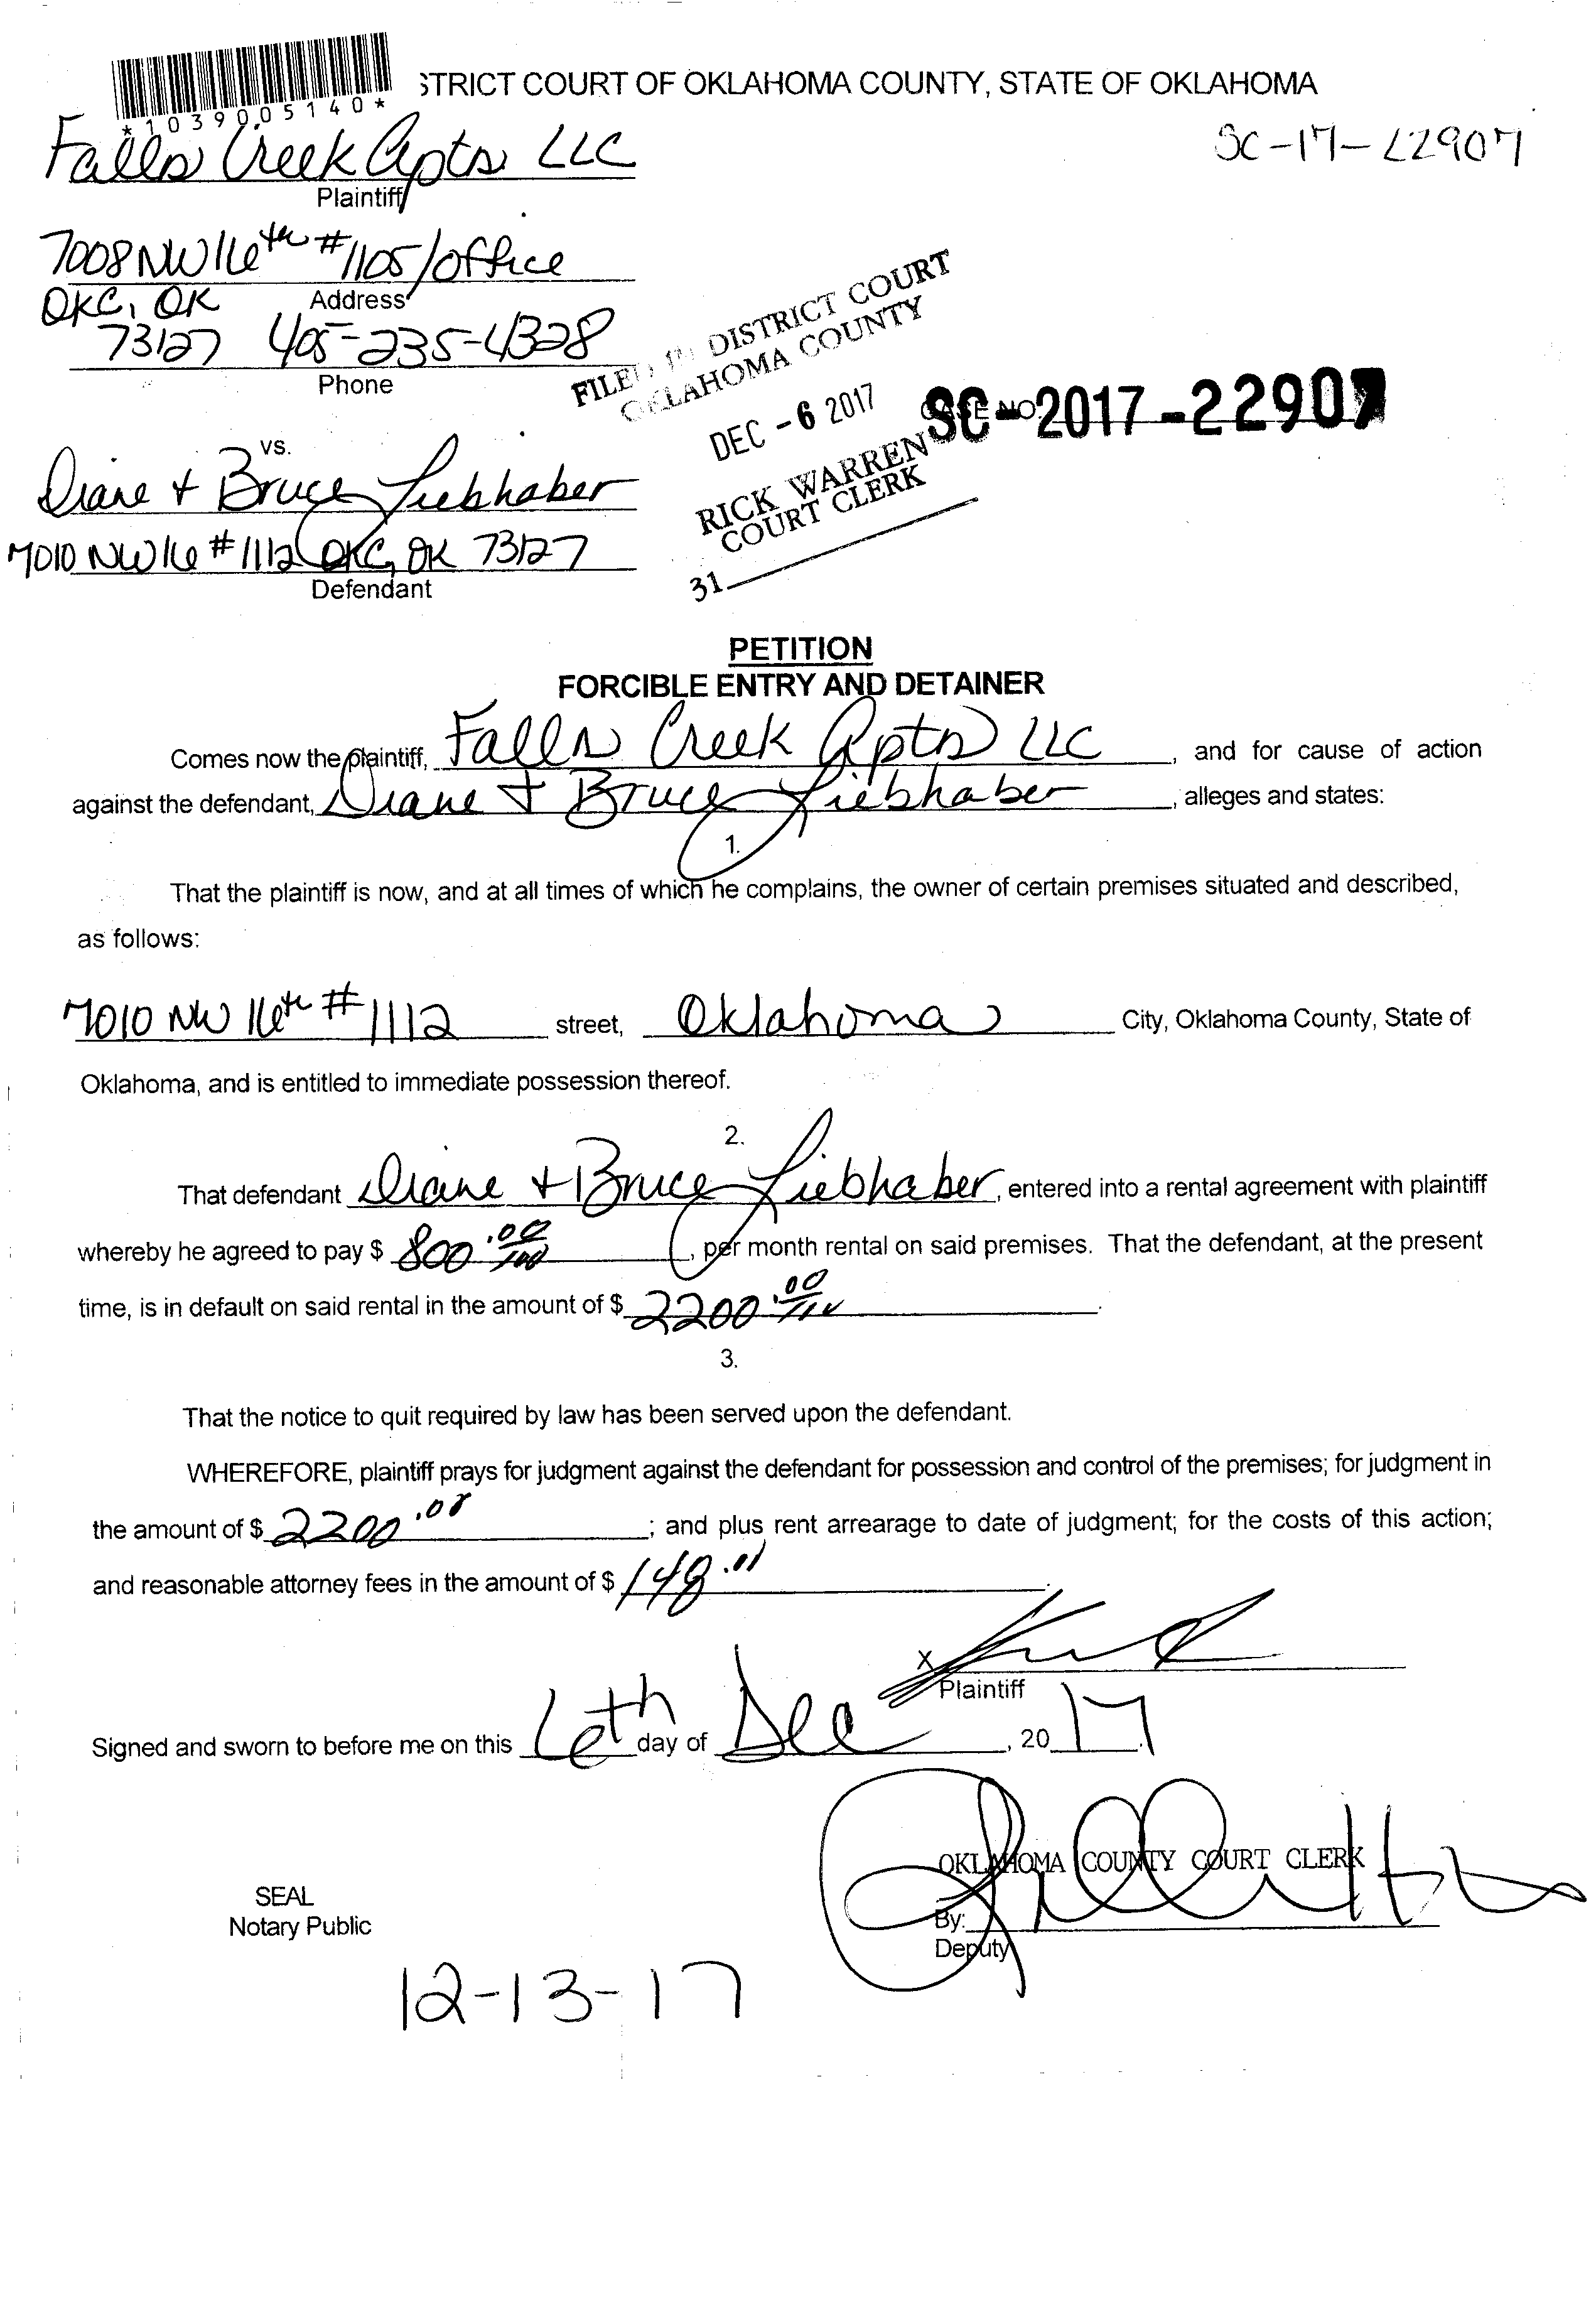 STRICT COURT OF OKLAHOMA COUNTY, STATE OF OKLAHOMA
*1039005140*
SC-17-22907
Falls Creek Apts LLC
Plaintiff
7008 NW 16th #1105/office
OKC, OK Address
73127 405-235-4328
Phone
FILED IN DISTRICT COURT
OKLAHOMA COUNTY
DEC -6 2017
RICK WARREN
COURT CLERK
31
CASE NO. SC-2017-22907
vs.
Diane + Bruce Liebhaber
7010 NW 16 #1112 OKC, OK 73127
Defendant
PETITION
FORCIBLE ENTRY AND DETAINER
Comes now the plaintiff, Falls Creek Apts LLC, and for cause of action
against the defendant, Diane + Bruce Liebhaber, alleges and states:
1.
That the plaintiff is now, and at all times of which he complains, the owner of certain premises situated and described,
as follows:
7010 NW 16th #1112 street, Oklahoma City, Oklahoma County, State of
Oklahoma, and is entitled to immediate possession thereof.
2.
That defendant Diane + Bruce Liebhaber, entered into a rental agreement with plaintiff
whereby he agreed to pay $ 800.00/100, per month rental on said premises. That the defendant, at the present
time, is in default on said rental in the amount of $ 2200.00.
3.
That the notice to quit required by law has been served upon the defendant.
WHEREFORE, plaintiff prays for judgment against the defendant for possession and control of the premises; for judgment in
the amount of $ 2200.00; and plus rent arrearage to date of judgment; for the costs of this action;
and reasonable attorney fees in the amount of $ 148.
X
Plaintiff
Signed and sworn to before me on this 6th day of Dec, 2017.
OKLAHOMA COUNTY COURT CLERK
SEAL
Notary Public
By:
Deputy
12-13-17